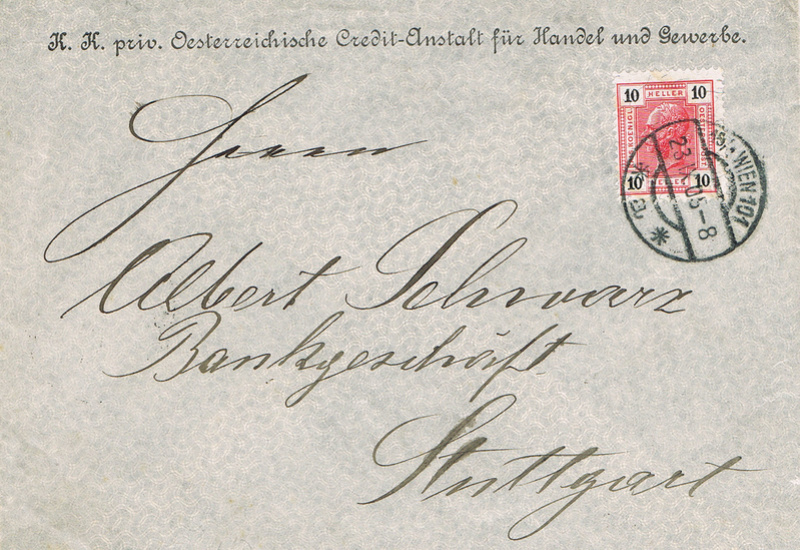 K. K. priv. Oesterreichische Credit-Anstalt für Handel und Gewerbe.
10 HELLER 10
10 HELLER 10
WIEN 101
05-8
Herrn
Albert Schwarz
Bankgeschäft
Stuttgart